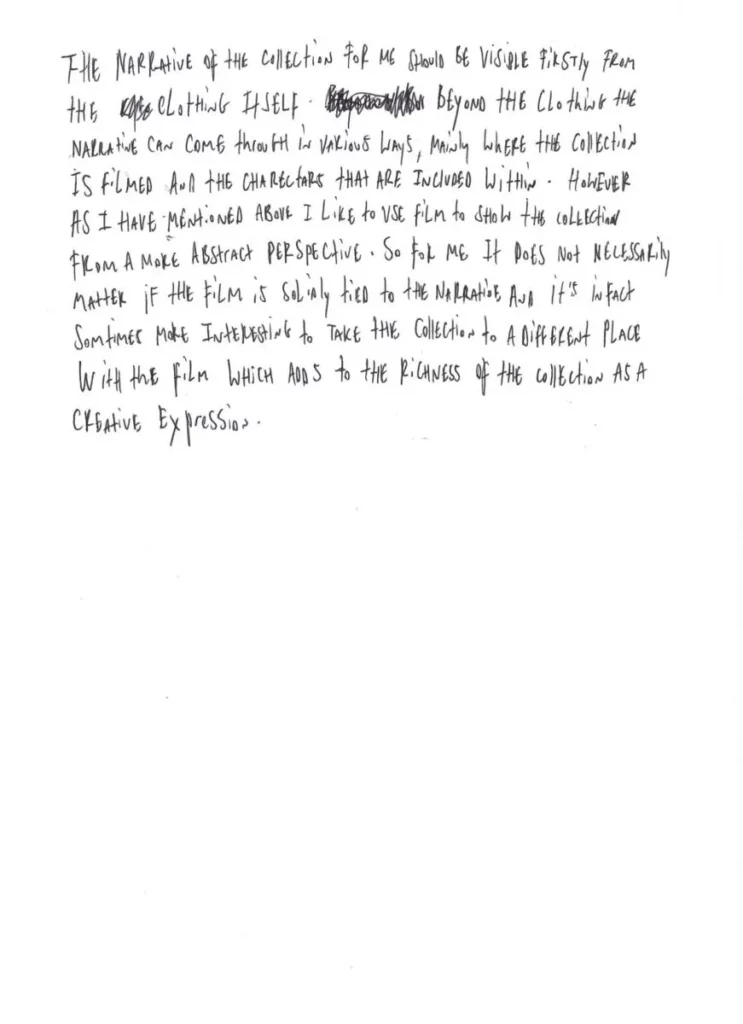 THE NARRATIVE OF THE COLLECTION FOR ME SHOULD BE VISIBLE FIRSTLY FROM
THE CLOTHING ITSELF. BEYOND THE CLOTHING THE
NARRATIVE CAN COME THROUGH IN VARIOUS WAYS, MAINLY WHERE THE COLLECTION
IS FILMED AND THE CHARECTARS THAT ARE INCLUDED WITHIN. HOWEVER
AS I HAVE MENTIONED ABOVE I LIKE TO USE FILM TO SHOW THE COLLECTION
FROM A MORE ABSTRACT PERSPECTIVE. SO FOR ME IT DOES NOT NECESSARILY
MATTER IF THE FILM IS SOLINLY TIED TO THE NARRATIVE AND IT'S INFACT
SOMTIMES MORE INTERESTING TO TAKE THE COLLECTION TO A DIFFERENT PLACE
WITH THE FILM WHICH ADDS TO THE RICHNESS OF THE COLLECTION AS A
CREATIVE EXPRESSION.